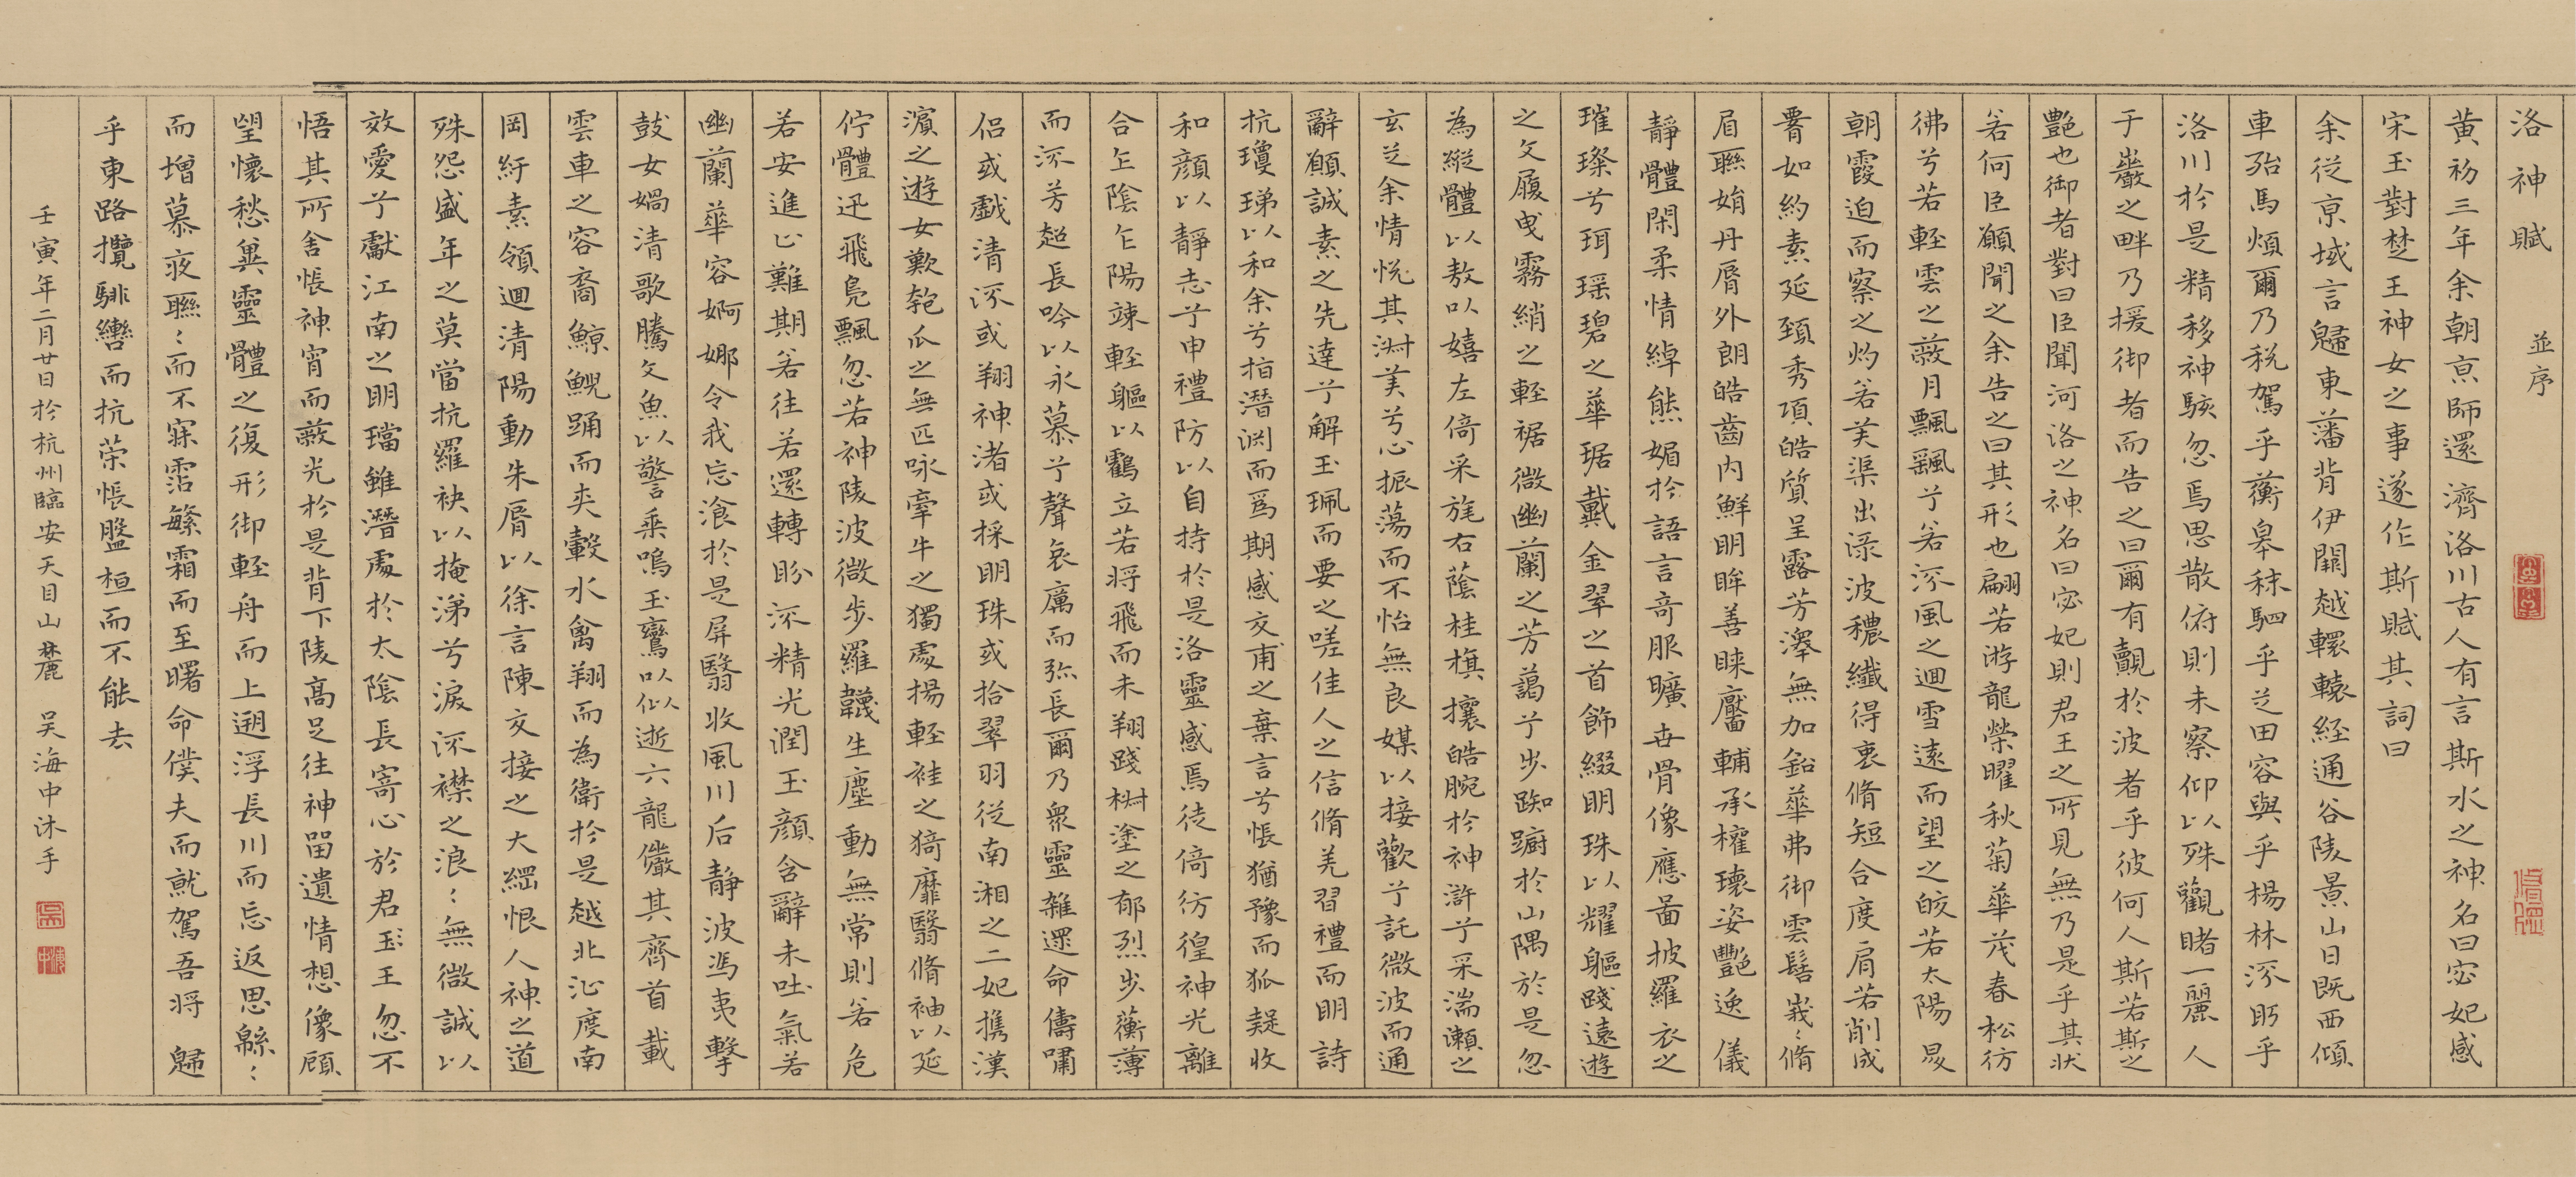 洛神賦 並序
黃初三年余朝京師還濟洛川古人有言斯水之神名曰宓妃感
宋玉對楚王神女之事遂作斯賦其詞曰
余從京域言歸東藩背伊闕越轘轅經通谷陵景山日既西傾
車殆馬煩爾乃稅駕乎蘅皋秣駟乎芝田容與乎楊林流眄乎
洛川於是精移神駭忽焉思散俯則未察仰以殊觀睹一麗人
于巖之畔乃援御者而告之曰爾有覿於波者乎彼何人斯若斯之
艷也御者對曰臣聞河洛之神名曰宓妃則君王之所見無乃是乎其狀
若何臣願聞之余告之曰其形也翩若游龍榮曜秋菊華茂春松彷
彿兮若輕雲之蔽月飄颻兮若流風之迴雪遠而望之皎若太陽昇
朝霞迫而察之灼若芙渠出淥波穠纖得衷脩短合度肩若削成
署如約素延頸秀項皓質呈露芳澤無加鉛華弗御雲髻峩〻脩
眉聯娟丹脣外朗皓齒內鮮明眸善睞靨輔承權瓌姿艷逸儀
靜體閑柔情綽態媚於語言奇服曠世骨像應圖披羅衣之
璀璨兮珥瑤碧之華琚戴金翠之首飾綴明珠以耀軀踐遠遊
之文履曳霧綃之輕裾微幽蘭之芳藹兮步踟躕於山隅於是忽
為縱體以敖以嬉左倚采旄右蔭桂旗攘皓腕於神滸兮采湍瀨之
玄芝余情悅其淑美兮心振蕩而不怡無良媒以接歡兮託微波而通
辭願誠素之先達兮解玉珮而要之嗟佳人之信脩羌習禮而明詩
抗瓊珶以和余兮指潛淵而為期感交甫之棄言兮悵猶豫而狐疑收
和顏以靜志兮申禮防以自持於是洛靈感焉徒倚彷徨神光離
合乍陰乍陽竦輕軀以鸖立若將飛而未翔踐椒塗之郁烈步蘅薄
而流芳超長吟以永慕兮聲哀厲而弥長爾乃眾靈雜遝命儔嘯
侶或戲清流或翔神渚或採明珠或拾翠羽從南湘之二妃携漢
濱之遊女歎匏瓜之無匹咏牽牛之獨處揚輕袿之猗靡翳脩袖以延
佇體迅飛鳧飄忽若神陵波微步羅韈生塵動無常則若危
若安進止難期若往若還轉盼流精光潤玉顏含辭未吐氣若
幽蘭華容婀娜令我忘飡於是屏翳收風川后靜波馮夷擊
鼓女媧清歌騰文魚以警乘鳴玉鸞以偕逝六龍儼其齊首載
雲車之容裔鯨鯢踊而夾轂水禽翔而為衛於是越北沚度南
岡紆素領迴清陽動朱脣以徐言陳交接之大綱恨人神之道
殊怨盛年之莫當抗羅袂以掩涕兮淚流襟之浪〻無微誠以
效愛兮獻江南之明璫雖潛處於太陰長寄心於君王忽不
悟其所舍悵神宵而蔽光於是背下陵高足往神留遺情想像顧
望懷愁冀靈體之復形御輕舟而上遡浮長川而忘返思緜〻
而增慕夜聯〻而不寐霑繁霜而至曙命僕夫而就駕吾將歸
乎東路攬騑轡而抗策悵盤桓而不能去
壬寅年二月廿日於杭州臨安天目山麓 吳海中沐手